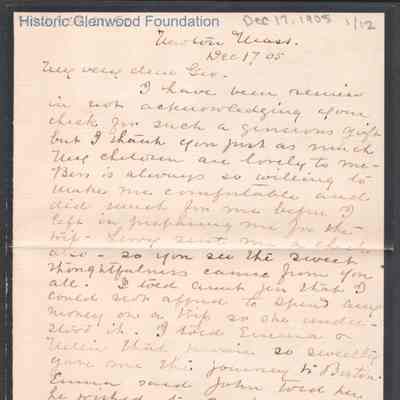 Historic Glenwood Foundation
Dec 17, 1905 1/12
Newton Mass.
Dec 17 05
My very dear Geo.
I have been remiss
in not acknowledging your
check for such a generous gift
but I thank you just as much
My children are lovely to me-
Bess is always so willing to
make me comfortable and
did much for me before I
left in preparing me for the
trip. sent me a check
also - so you see the sweet
thoughtfulness came from you
all. I told aunt Jen that I
could not afford to spend any
money on a trip so she under-
stood it. I told Emma or
Nellie that so sweetly
gave me the journey to Boston.
Emma said John told her
he wished to